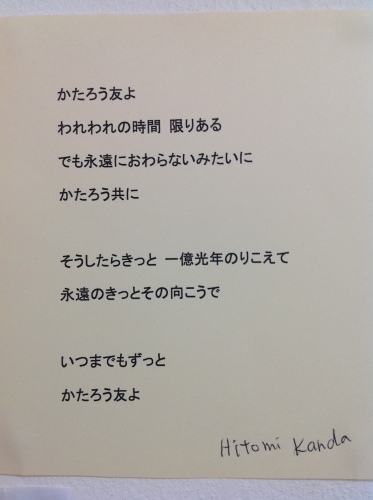 かたろう友よ
われわれの時間 限りある
でも永遠におわらないみたいに
かたろう共に
そうしたらきっと 一億光年のりこえて
永遠のきっとその向こうで
いつまでもずっと
かたろう友よ
Hitomi Kanda